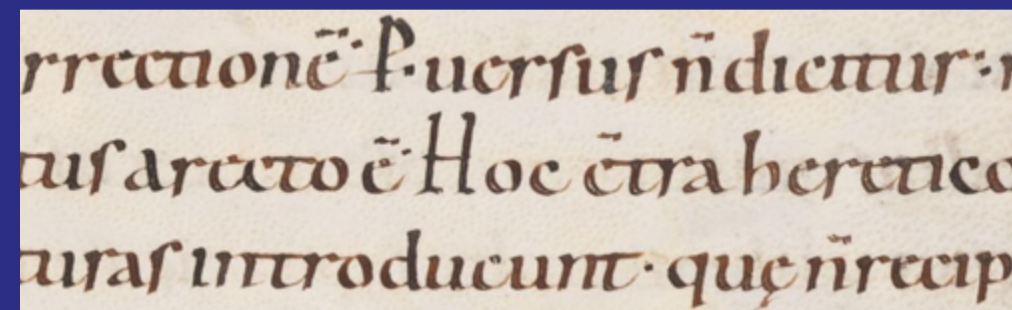 rrectionē· P·uersus n̄ dicitur· r
tus a recto ē· Hoc c̄tra heretico
turas introducunt· quę n̄ recip